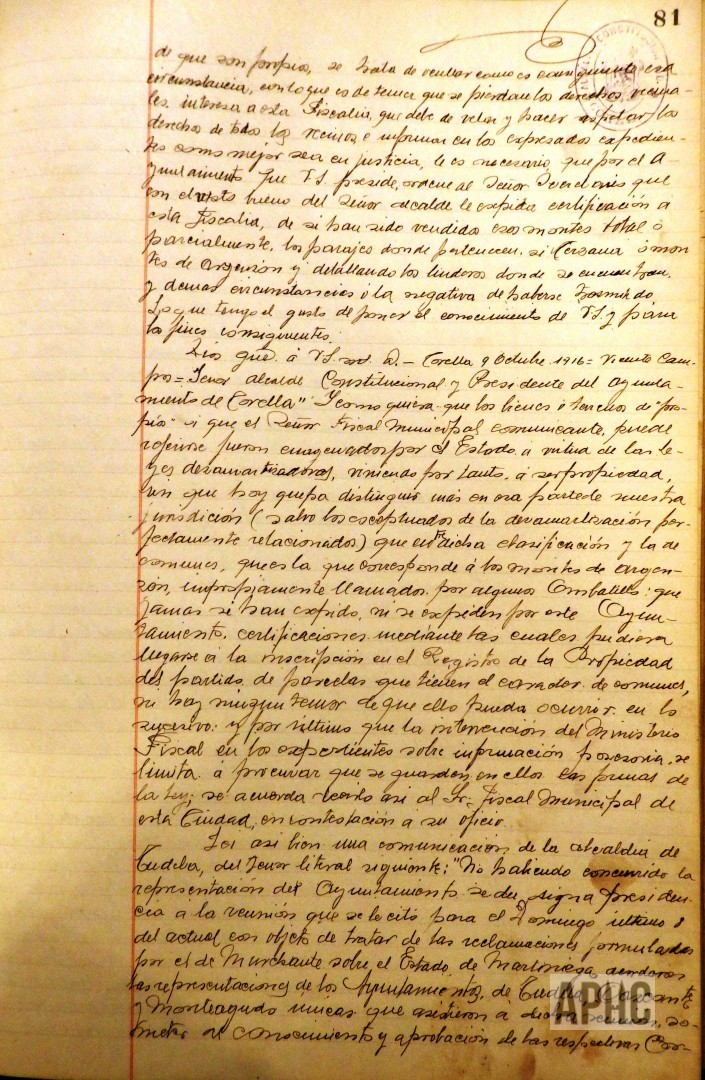 81
de que son propios, se trata de vender como es consiguiente esa
circunstancia, con lo que es de temer que se pierdan los derechos vecina-
les interesa a esta Fiscalia, que debe de velar y hacer respetar los
derechos de todos los vecinos e informar en los expresados expedien-
tes como mejor sea en justicia, le es necesario que por el A-
yuntamiento que V.S. preside, ordene al Señor Secretario que
con el visto bueno del Señor alcalde le expida certificación a
esta Fiscalia, de si han sido vendidos esos montes total ó
parcialmente, los parajes donde pertenecen, si Cerzana ó mon-
tes de Argenzón y detallando los linderos donde se encuentran
y demas circunstancias ó la negativa de haberse
Lo que tengo el gusto de poner al conocimiento de V.S. y para
los fines consiguientes.
Dios gue. á V.S. Corella 9 Octubre 1916 = Vicente Cam-
pos = Señor alcalde Constitucional y Presidente del Ayunta-
miento de Corella" Y como quiera que los bienes ó terrenos de "pro-
pios" á que el Señor Fiscal Municipal comunicante, puede
referirse fueron enagenados por el Estado, a virtud de las le-
yes desamortizadoras, viniendo por tanto, á ser propiedad,
sin que hoy quepa distinguir más en esa parte de nuestra
jurisdición (salvo los esceptuados de la desamortización per-
fectamente relacionados) que dicha clasificación y la de
comunes, que es la que corresponde á los montes de Argen-
zón, impropiamente llamados por algunos Ombatillo; que
jamas se han expedido, ni se expiden por este Ayun-
tamiento, certificaciones mediante las cuales pudiera
llegarse á la inscripción en el Registro de la Propiedad
del partido, de parcelas que tienen el caracter de comunes,
ni hay ningun temor de que ello pueda ocurrir en lo
sucesivo: y por ultimo que la intervención del Ministerio
Fiscal en los expedientes sobre información posesoria, se
limita á procurar que se guarden en ellos las formas de
la Ley; se acuerda decirlo asi al Sr. Fiscal Municipal de
esta Ciudad, en contestación a su oficio.
Lei asi bien una comunicación de la alcaldia de
Tudela, del tenor literal siguiente: "No habiendo concurrido la
representación del Ayuntamiento de su digna presiden-
cia a la reunión que se le citó para el Domingo ultimo 8
del actual con objeto de tratar de las reclamaciones formuladas
por el de Murchante sobre el Estado de Marliniega, acordaron
las representaciones de los Ayuntamientos de Tudela, Cascante
y Monteagudo unicas que asistieron a dicha reunión, so-
meter al conocimiento y aprobación de las respectivas Cor-
APHC